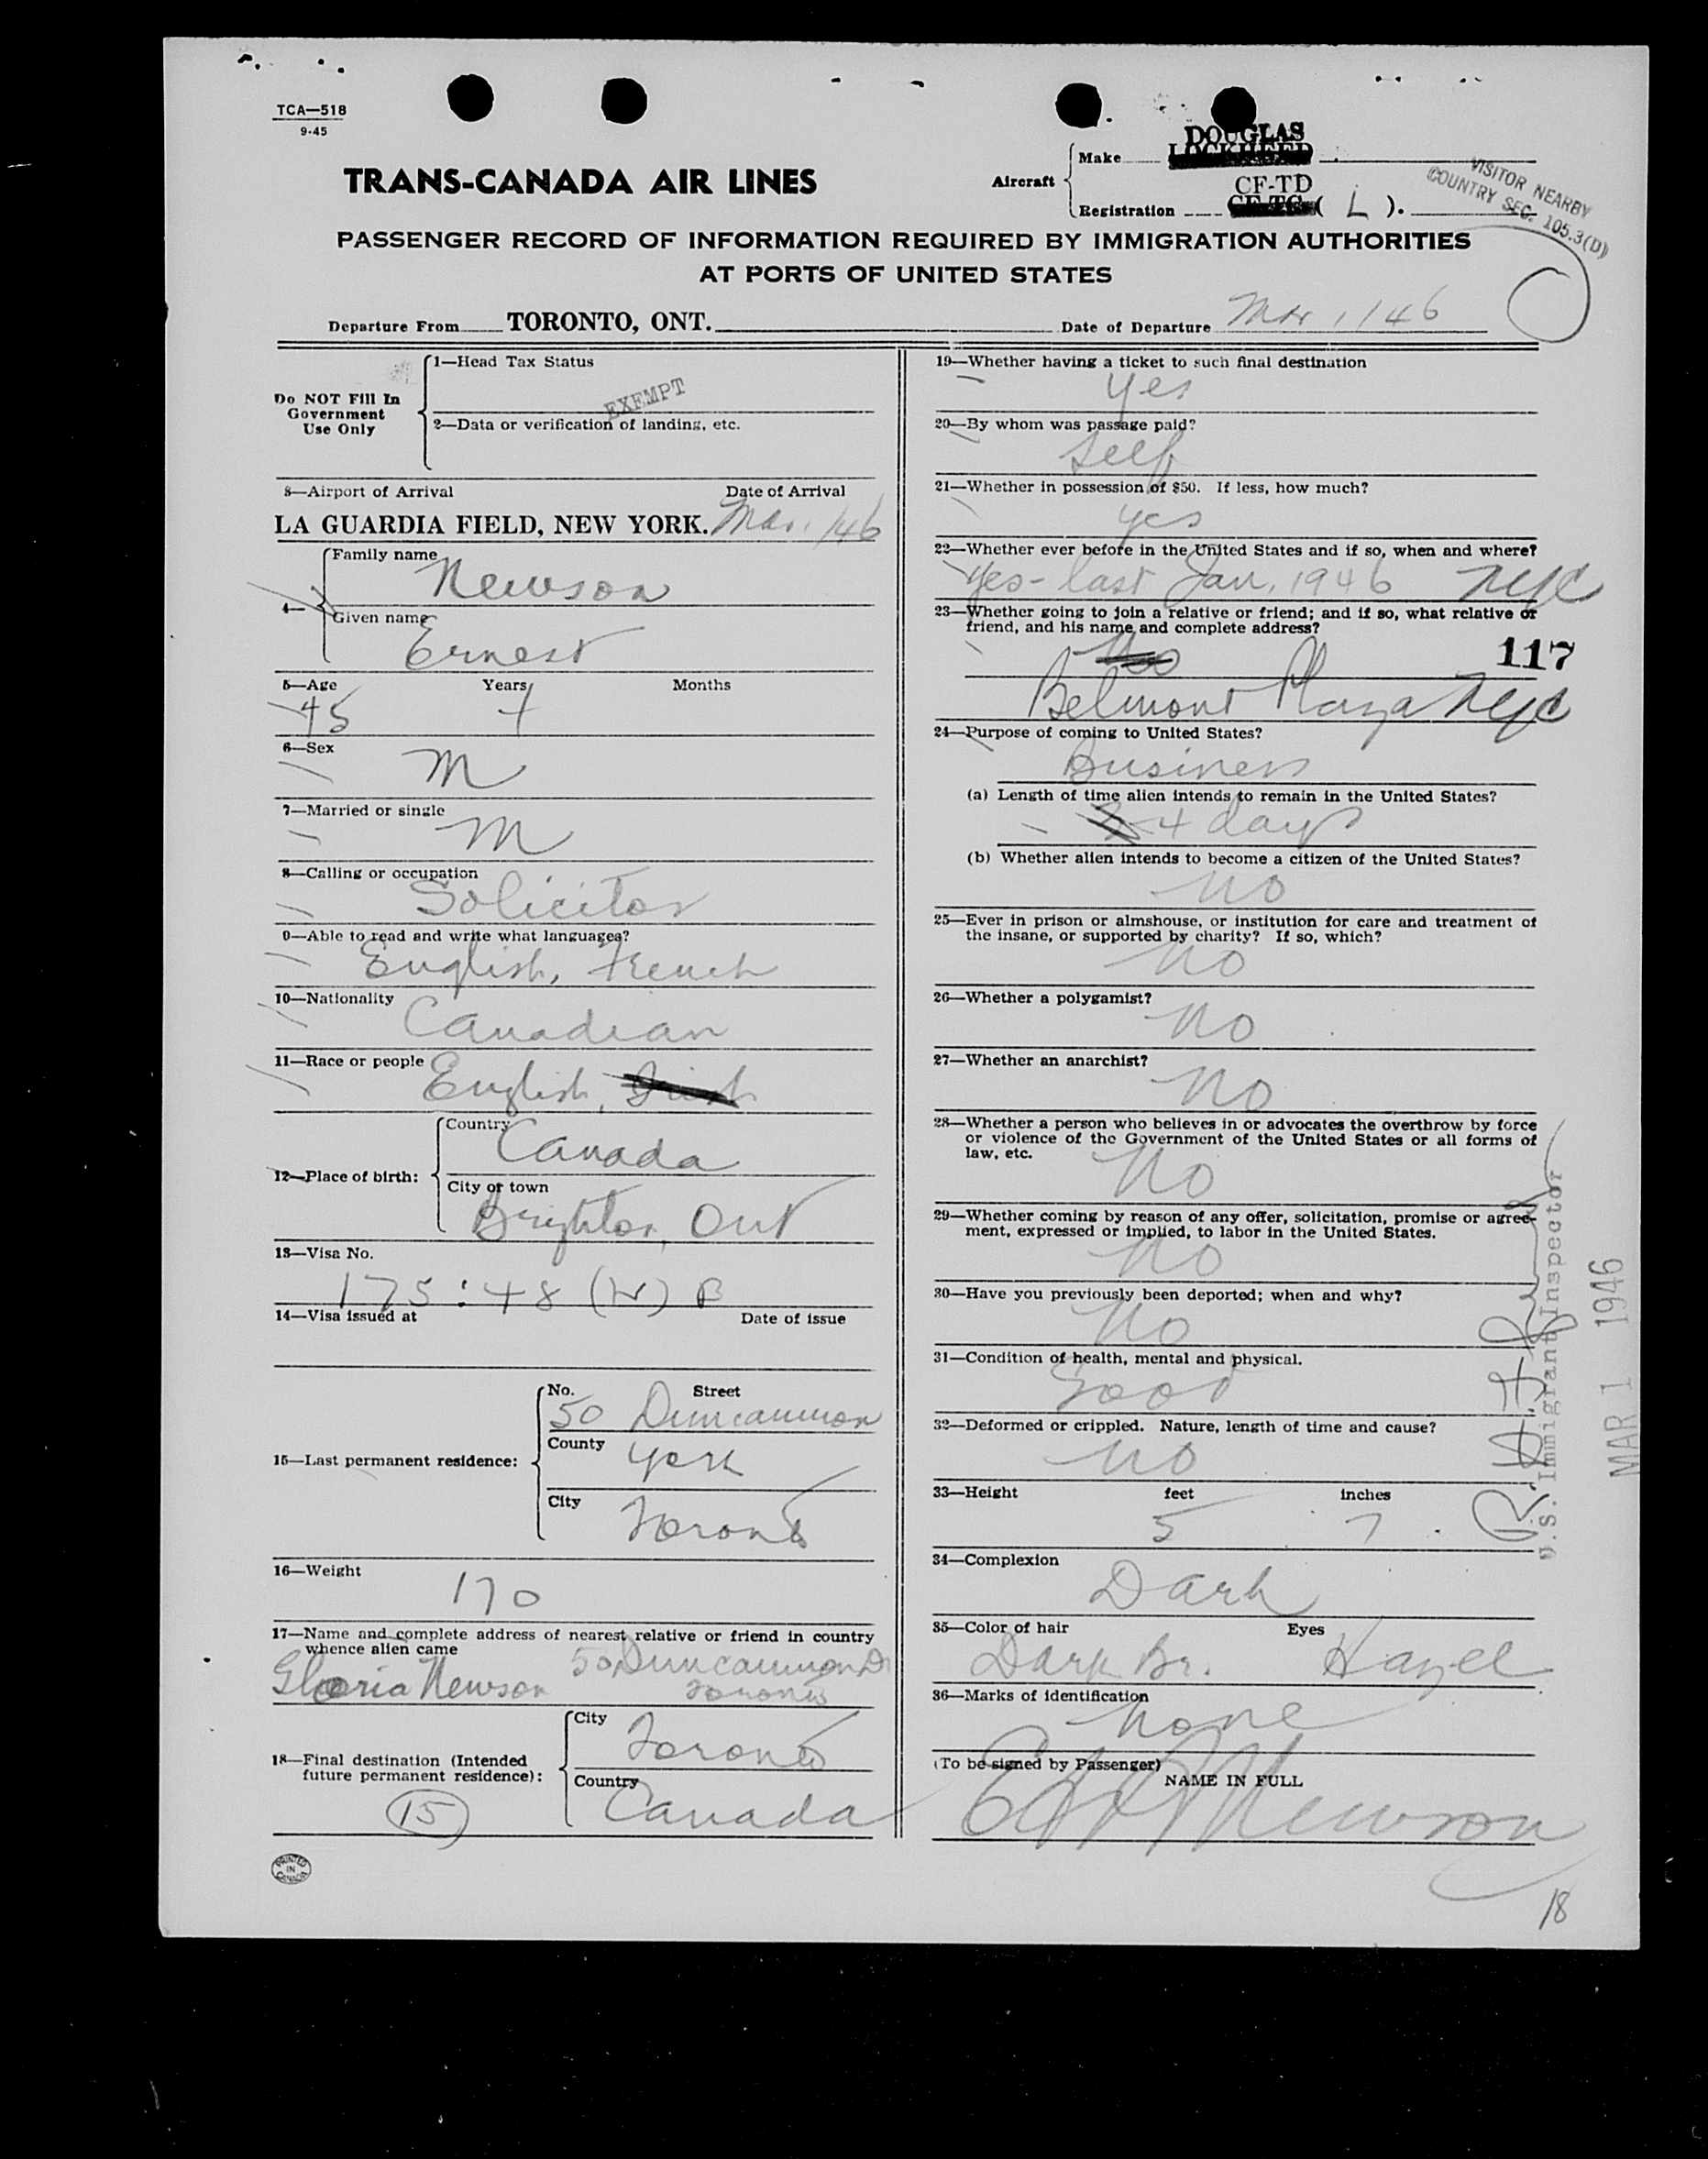 TCA—518
9-45
DOUGLAS
Make LOCKHEED
TRANS-CANADA AIR LINES
Aircraft
CF-TD
Registration CF-TG ( L ).
VISITOR NEARBY
COUNTRY SEC. 105.3(D)
PASSENGER RECORD OF INFORMATION REQUIRED BY IMMIGRATION AUTHORITIES
AT PORTS OF UNITED STATES
Departure From TORONTO, ONT.
Date of Departure Mar 1/46
Do NOT Fill In
Government
Use Only
1—Head Tax Status
EXEMPT
2—Data or verification of landing, etc.
3—Airport of Arrival Date of Arrival
LA GUARDIA FIELD, NEW YORK. Mar. 1/46
4—
Family name
Newson
Given name
Ernest
5—Age Years Months
45
6—Sex
M
7—Married or single
M
8—Calling or occupation
Solicitor
9—Able to read and write what languages?
English, French
10—Nationality
Canadian
11—Race or people
English, Irish
12—Place of birth:
Country
Canada
City or town
Brighton, Ont
13—Visa No.
175:48 (W) B
14—Visa issued at Date of issue
15—Last permanent residence:
No. Street
50 Duncannon
County
York
City
Toronto
16—Weight
170
17—Name and complete address of nearest relative or friend in country
whence alien came
Gloria Newson 50 Duncannon Dr
Toronto
18—Final destination (Intended
future permanent residence):
City
Toronto
Country
Canada
15
PRINTED
IN
CANADA
19—Whether having a ticket to such final destination
Yes
20—By whom was passage paid?
Self
21—Whether in possession of $50. If less, how much?
yes
22—Whether ever before in the United States and if so, when and where?
Yes - last Jan. 1946 NYC
23—Whether going to join a relative or friend; and if so, what relative or
friend, and his name and complete address?
No
117
Belmont Plaza NYC
24—Purpose of coming to United States?
Business
(a) Length of time alien intends to remain in the United States?
4 days
(b) Whether alien intends to become a citizen of the United States?
No
25—Ever in prison or almshouse, or institution for care and treatment of
the insane, or supported by charity? If so, which?
No
26—Whether a polygamist?
No
27—Whether an anarchist?
No
28—Whether a person who believes in or advocates the overthrow by force
or violence of the Government of the United States or all forms of
law, etc.
No
29—Whether coming by reason of any offer, solicitation, promise or agree-
ment, expressed or implied, to labor in the United States.
No
30—Have you previously been deported; when and why?
No
31—Condition of health, mental and physical.
Good
32—Deformed or crippled. Nature, length of time and cause?
No
33—Height feet inches
5 7
34—Complexion
Dark
35—Color of hair Eyes
Dark Br. Hazel
36—Marks of identification
None
(To be signed by Passenger)
NAME IN FULL
Newson
U.S. Immigrant Inspector
MAR 1 1946
18